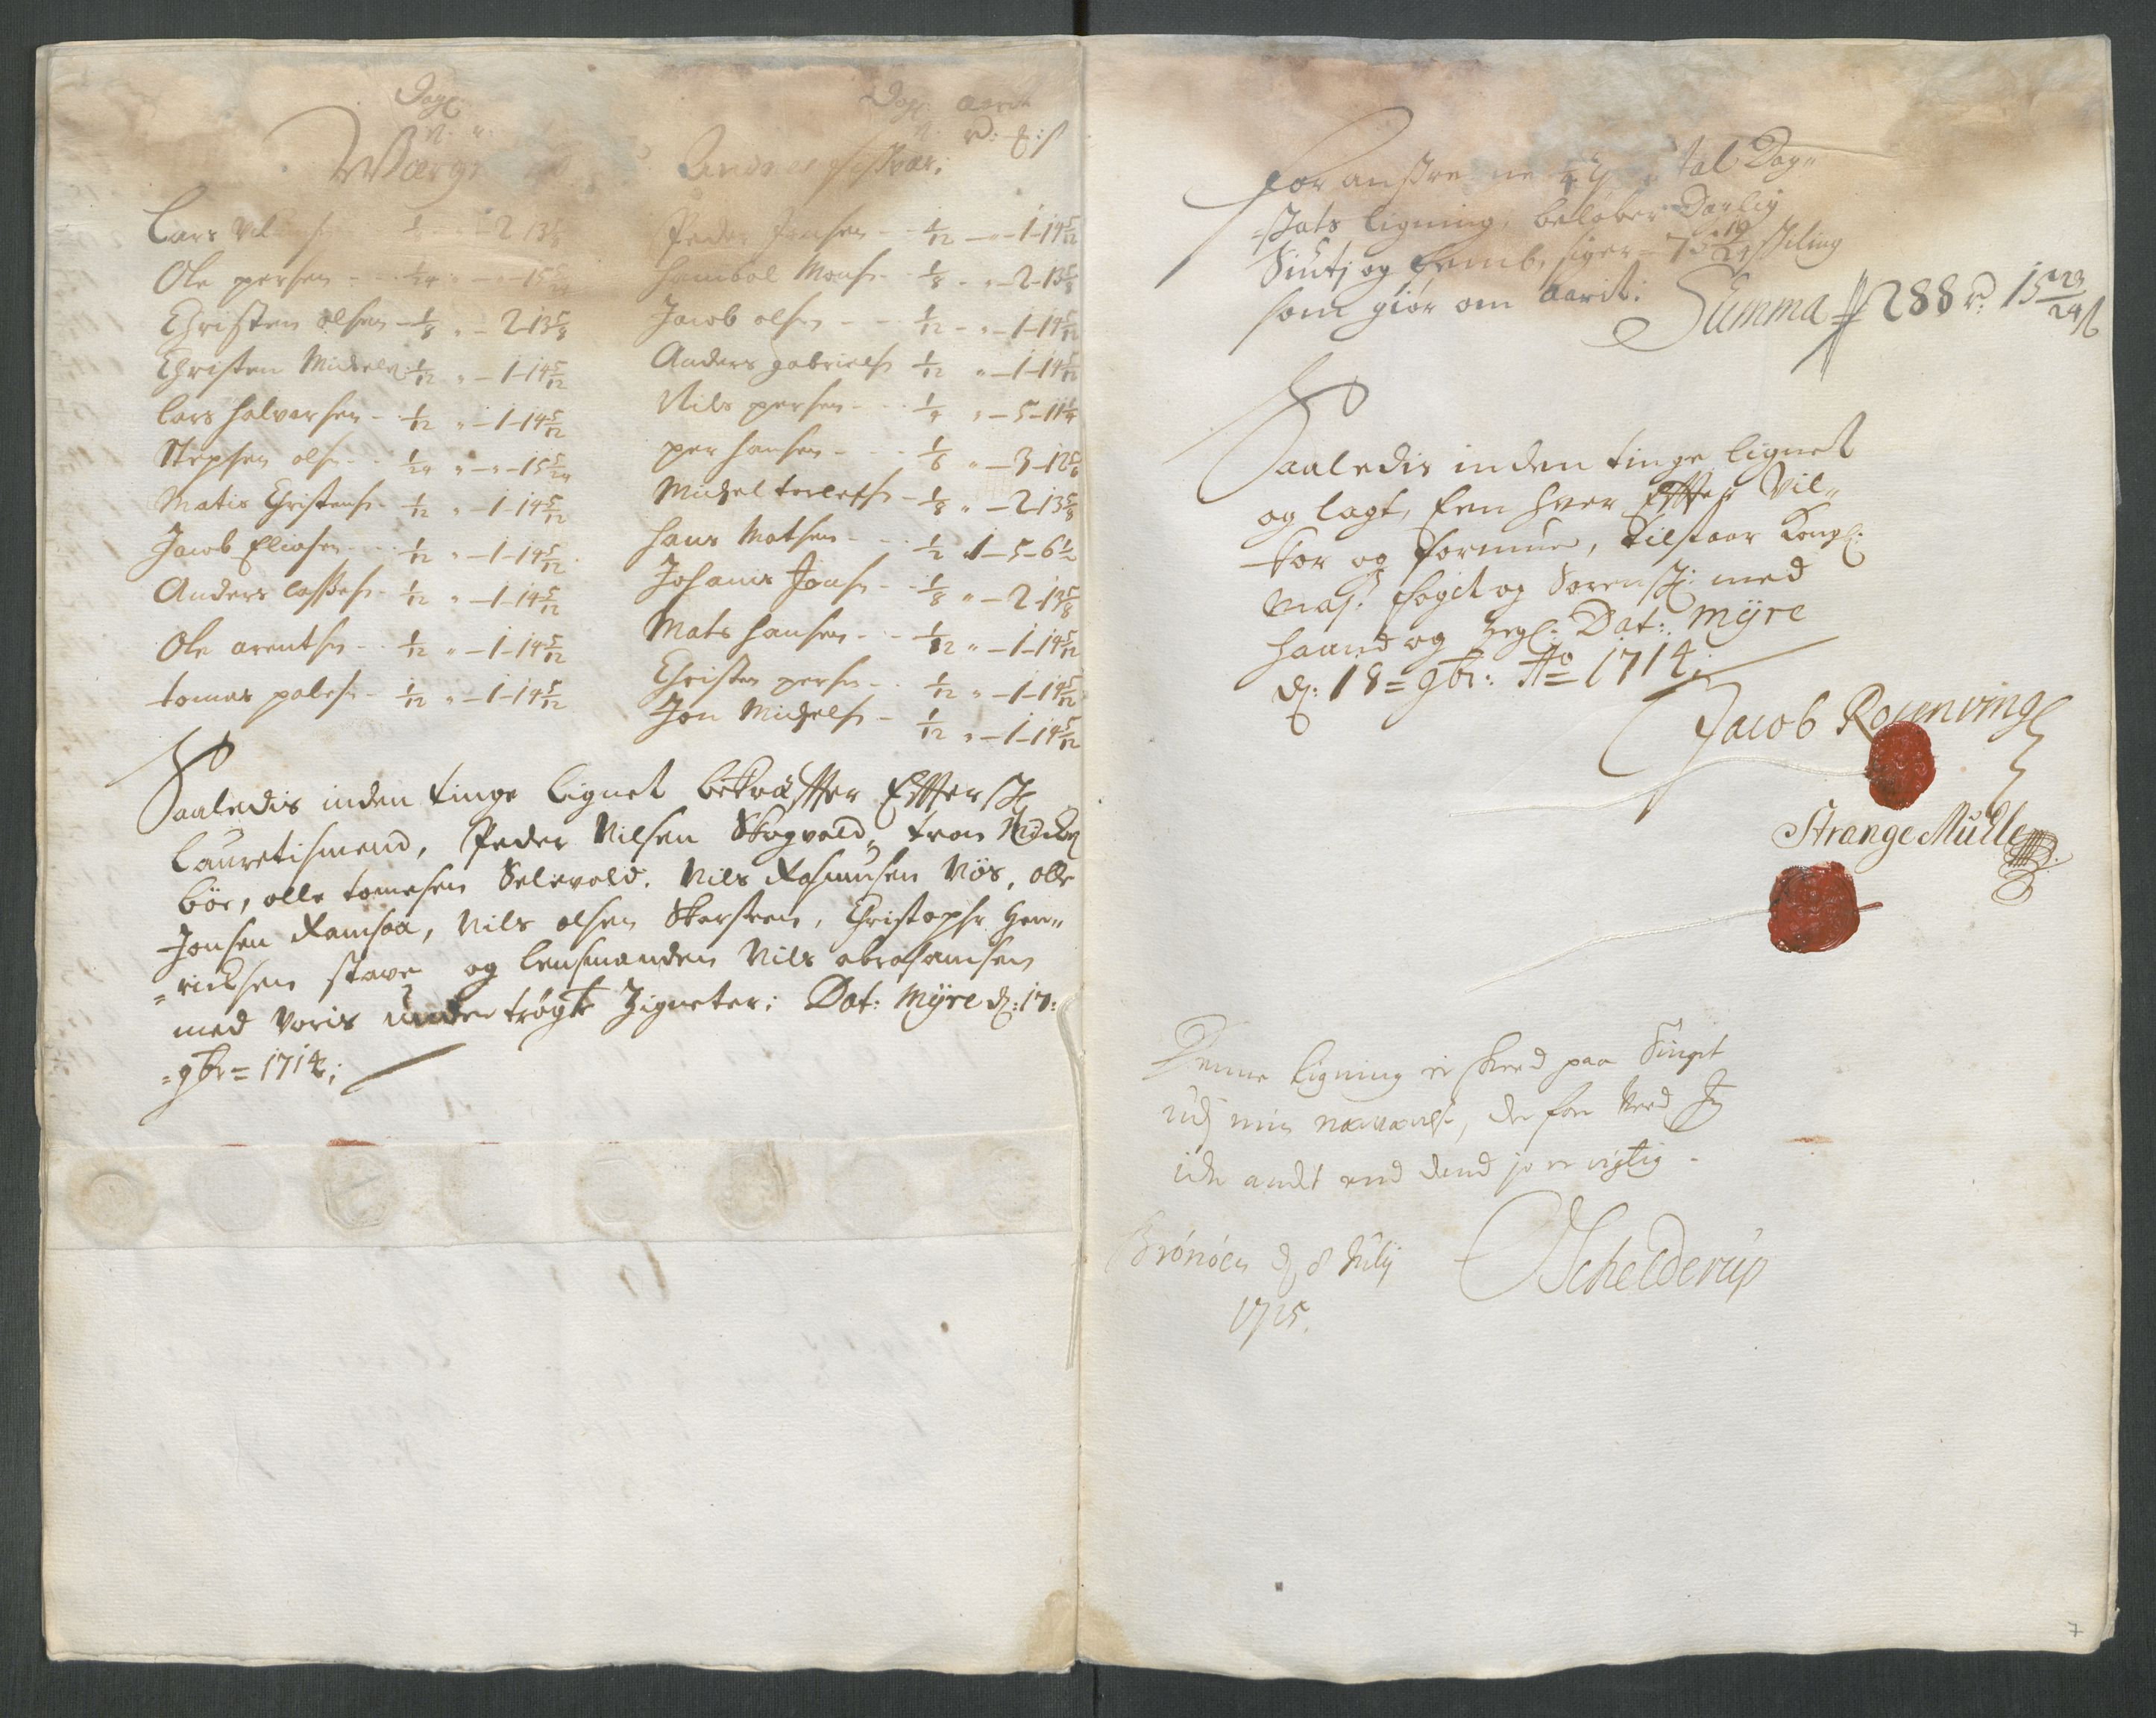 Dagl:
Lars
Ole persen - - 1/24 " - " - 15 5/24
Christen olsen - 1/8 " - 2 - 13 5/8
Christen Michels: 1/12 " - 1 - 14 5/12
Lars halvorsen - 1/12 " - 1 - 14 5/12
Stephen olsn - - 1/24 " - " - 15 5/24
Matis Christensn - 1/12 " - 1 - 14 5/12
Jacob Eliasen - - 1/12 " - 1 - 14 5/12
Anders lassesn - 1/12 " - 1 - 14 5/12
Ole arentsn - - 1/12 " - 1 - 14 5/12
tomas palesn - 1/12 " - 1 - 14 5/12
Dagl: aarit
Peder Jonsen - - 1/12 - " - 1 - 14 5/12
hambol Monsn - 1/8 - " - 2 - 13 5/8
Jacob olsn - - - 1/12 - " - 1 - 14 5/12
Anders gabrielsn 1/12 " - 1 - 14 5/12
Nils persen - - 1/4 " - 5 - 11 1/4
per hansen - - - 1/6 " - 3 - 12 5/6
Michel torlefsn - 1/8 " - 2 - 13 5/8
hans Matsen - - - 1/2 1 - 5 - 6 1/2
Johanis Jonsn - - 1/8 " - 2 - 13 5/8
Mats hansen - - - 1/12 " - 1 - 14 5/12
Christen persn - - 1/12 " - 1 - 14 5/12
Jon Michelsn - 1/12 " - 1 - 14 5/12
Saaledis inden tinge lignet bekræffter Effterskr
Lauretismend, Peder Nilsen Skogvold,
bör, olle tomesen Selevold. Nils Rasmusen Nös, olle
Jonsen Ramsaa, Nils olsen Skarsteen, Christophr Hen"
= ricksen stave og lensmanden Nils abrahamsen
med voris undertrögte Zigneter; Dat: Myre d: 17:
= 9br = 1714;
tal Dag"
= skats ligning, beløber Daglig
Siutj og femb, siger - 75 19/24 skiling
som giör om aarit: Summa 288 r 15 23/24 s
Saaledis inden tinge lignet
og lagt, Een hver Effter Vil"
kor og formue, Tilstaar Kongl:
Maj: fogit og Sorenskr: med
haand og Zegl: Dat: Myre
d: 18 = 9br: Ao 1714;
Jacob Rosenving
Strange Mülle
Denne Ligning er skeed paa Tingit
udj min nærværelse, derfor veed Jeg
icke andt end dend jo er rigtig -
Brönöen d 8 Julij
1715.
OSchelderup
7